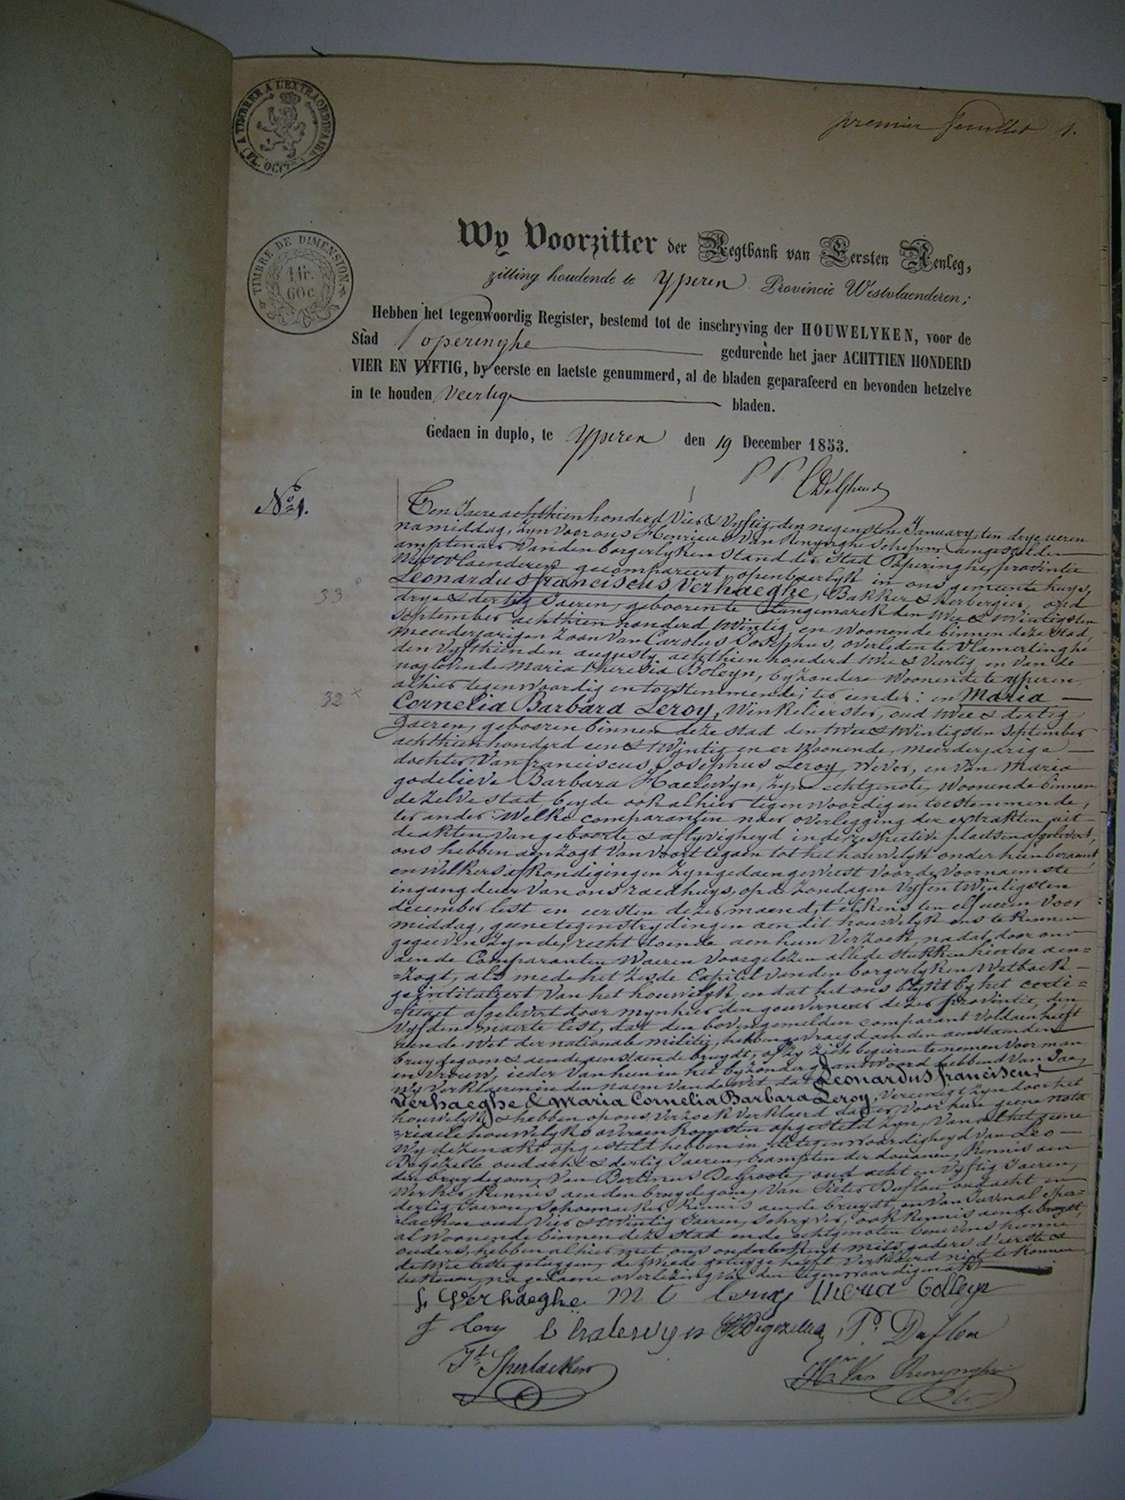 A TIMBRER A L'EXTRAORDINAIRE
premier feuillet 1.
TIMBRE DE DIMENSION
1 fr.
60 c
Wy Voorzitter der Regtbank van Eersten Aenleg,
zitting houdende te Yperen Provincie Westvlaenderen;
Hebben het tegenwoordig Register, bestemd tot de inschryving der HOUWELYKEN, voor de
Stad Poperinghe gedurende het jaer ACHTTIEN HONDERD
VIER EN VYFTIG, by eerste en laetste genummerd, al de bladen geparafeerd en bevonden hetzelve
in te houden Veertig bladen.
Gedaen in duplo, te Yperen den 19 December 1853.
No 1.
Ten Jaere achttien honderd Vier & Vyftig, den negensten January, ten drye ueren
namiddag, zyn voor ons Henricus Van Renynghe Schepen aengestelden
amptenaer Vanden borgerlyken stand der Stad Poperinghe, provintie
Westvlaenderen gecompareert openbaerlyk in ons gemeente huys,
Leonardus franciscus Verhaeghe, Bakker & herbergier, oud
33
drye & dertig Jaeren, gebooren te Langemarck den twee & twintigsten
September achttien honderd twintig en woonende binnen deze Stad,
meerderjarigen Zoon Van Carolus Josephus, overleden te Vlamertinghe
den Vyfthienden augusty achthien honderd twee & Veertig en van de
noglevende Maria Theresia Boleyn, byzondere woonende te yperen
alhier tegenwoordig en toestemmende; ter eender: en Maria
32 x
Cornelia Barbara Leroy, Winkelierster, oud twee & dertig
Jaeren, gebooren binnen deze stad den twee & twintigsten September
achthien honderd een & twintig en er woonende, meerderjarige
dochter Van franciscus Josephus Leroy, wever, en van Maria
godelieve Barbara Haelewyn, zyne echtgenote, woonende binnen
dezelve stad beyde ook alhier tegenwoordig en toestemmende,
ter ander. Welke comparanten naer overlegging der extrakten uit
de akten van geboorte & aflyvigheyd in de respective plaetsen afgelevert,
ons hebben aenzogt Van voort te gaen tot het houwelyk onder hun beraemt
en welkers afkondigingen zyn gedaen geweest voor de voornaemste
ingang deur van ons raedhuys, op de zondagen Vyf en twintigsten
december lest en eersten dezer maend, telkens ten elf ueren voor
middag, geene tegenstrydingen aen dit houwelyk ons te kennen
gegeven zynde, recht doende aen hun Verzoek, nadat door ons
aen de Comparanten waeren voorgelezen alle de stukken hier toe aen=
=zogt, als mede het zesde Capitel van den borgerlyken Wetboek
geintituleert Van het houwelyk, en dat het ons blykt by het certi=
=ficaet afgelevert door mynheer den gouverneur dezer provintie, den
Vyfden maerte lest, dat den bovengemelden comparant voldaen heeft
aen de Wet der nationale militie, hebben gevraegd aen den aenstaenden
bruydegom & aen de aenstaende bruydt, of zy zich begeeren te nemen voor man
en Vrouw, ieder Van hun in het byzonder geantwoord hebbend van Jae,
Wy Verklaeren in den naem Van de Wet, dat Leonardus franciscus
Verhaeghe & Maria Cornelia Barbara Leroy, Vereenigt zyn door het
houwelyk & hebben op ons Verzoek verklaerd dat er voor hun geene nota
riaele houwelyks overeenkomsten opgesteld zyn, Van al het geene
Wy deze akt opgestelt hebben in de tegenwoordigheyd Van Leo
Begezelle oud acht & dertig Jaeren, beampten der douanen, kennis aen
den bruydegom, Van Bertinus De Groote, oud acht en Vyftig Jaeren,
werker, kennis aen den bruydegom, Van Pieter Duflou oud acht en
dertig Jaeren, schoemaeker, kennis aen de bruydt, en Van Juvenal Sper=
laecken oud Vier & twintig Jaeren, schryver, ook kennis aen de bruydt,
al woonende binnen deze Stad en de echtgenoten benevens hunne
ouders, hebben alhier met ons onderteekent mits gaders d'eerste &
de twee leste getuygen, de tweede getuyge heeft verklaerd niet te konnen
teekenen, na gedaene overlezing van den tegenwoordigen akt
L Verhaeghe M C Leroy theresia Bolleyn
f Leroy B haelewyn L Begezelle P. Duflou
Jl Sperlaecken Hri Van Renynghe